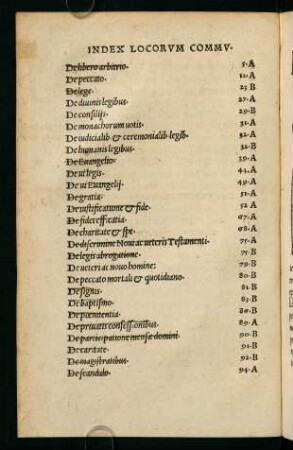 INDEX LOCORVM COMMV-
De libero arbitrio 5·A
De peccato 12·A
De lege 23 B
De diuinis legibus 27·A
De consilijs 29·B
De monachorum uotis 31·A
De iudicialib· & ceremonialib· legib· 32·A
De humanis legibus 32·B
De Euangelio 39·A
De ui legis 44·A
De ui Euangelij 49·A
De gratia 51·A
De iustificatione & fide 52 A
De fidei efficatia 67·A
De charitate & spe 68·A
De discrimine Noui ac ueteris Testamenti 75·A
De legis abrogatione 75·B
De ueteri ac nouo homine 79·B
De peccato mortali & quotidiano 80·B
De signis 81·B
De baptismo 83·B
De pœnitentia 86·B
De priuatis confessionibus 90·A
De participatione mensæ domini 90·B
De caritate 91·B
De magistratibus 92·B
De scandalo 94·A